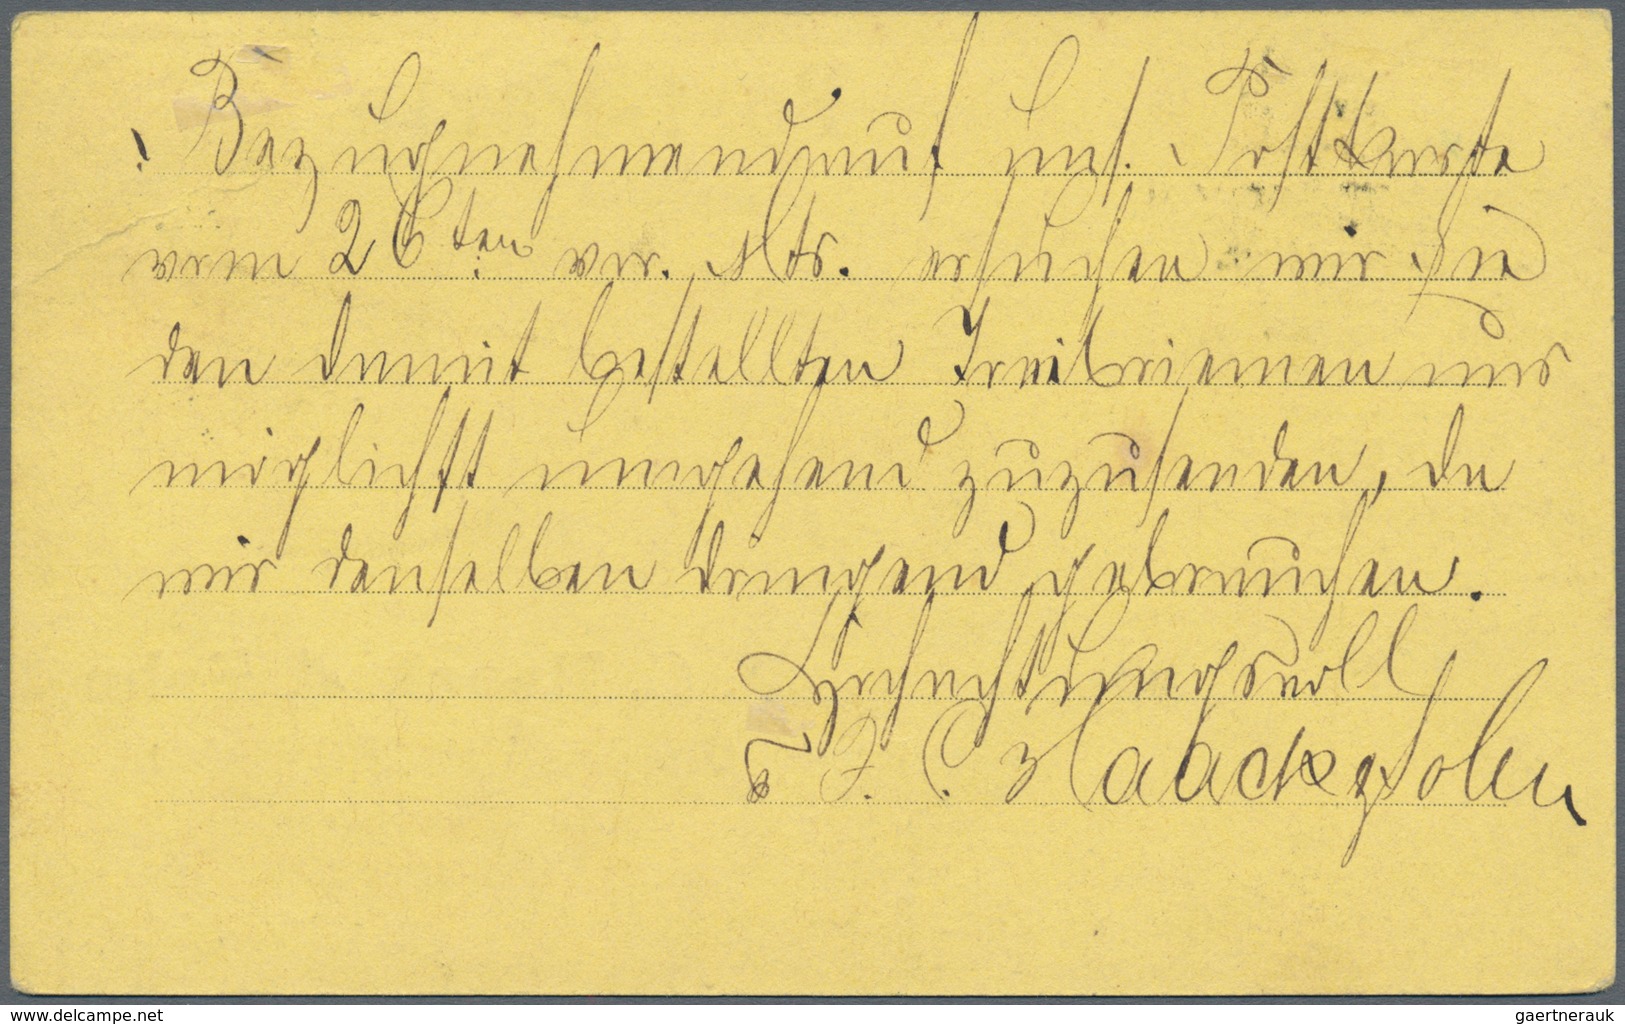 Bezugnehmend auf uns. Postkarte
vom 26ten vor. Mts. ersuchen wir Sie
den damit bestellten Treibriemen uns
möglichst umgehend zuzusenden, da
wir denselben dringend gebrauchen.
Hochachtungsvoll
Haacke & Sohn
www.delcampe.net
gaertnerauk